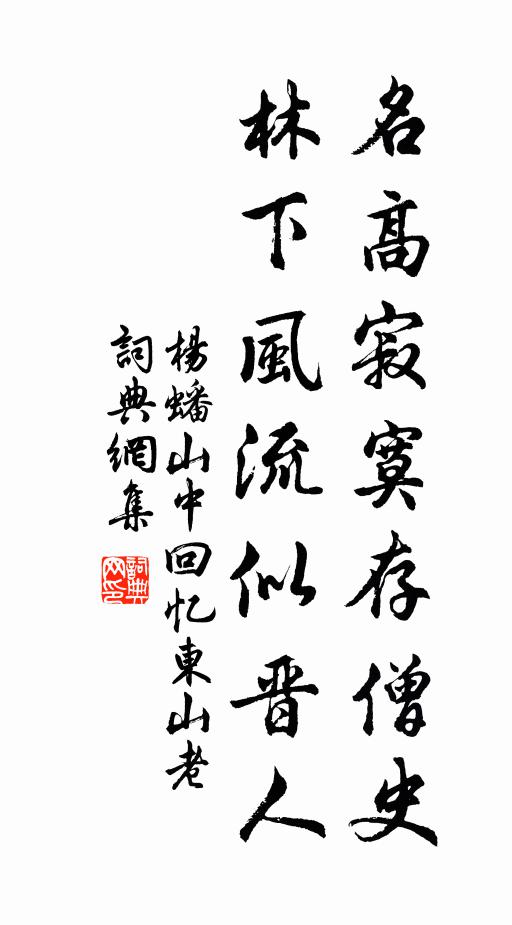 名高寂寞存僧史
林下風流似晋人
楊蟠山中回忆東山老
詞典網集
詞典网印